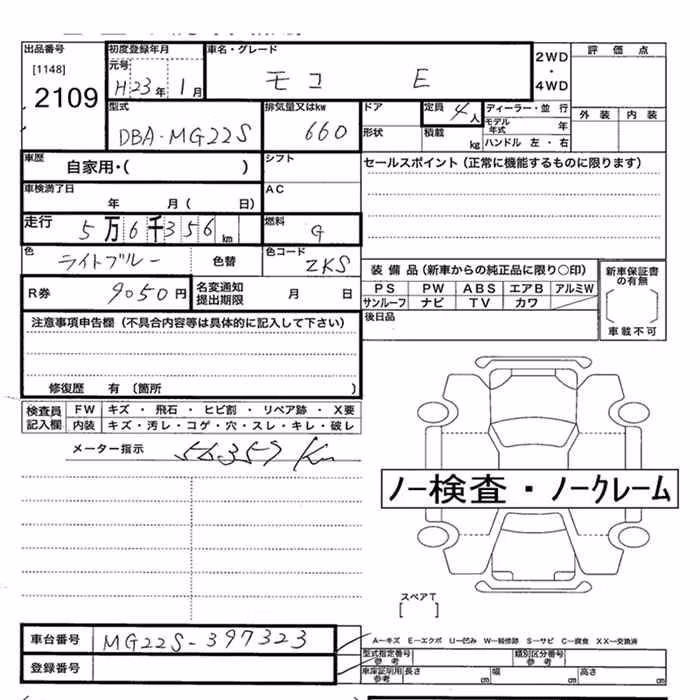 出品番号 初度登録年月 車名・グレード 2WD・4WD 評価点
[1148] 元号
2109 H23年 1月 モコ E
外装 内装
型式 排気量又はkw ドア 定員 4人 ディーラー・並行
DBA-MG22S 660 形状 積載 kg モデル年式 年
ハンドル 左・右
車歴 自家用・( ) シフト セールスポイント(正常に機能するものに限ります)
車検満了日 年 月( 日) AC
走行 5万6千356km 燃料 G
色 ライトブルー 色替 色コード ZKS
装備品(新車からの純正品に限り〇印) 新車保証書の有無
R券 9050円 名変通知提出期限 月 日
PS PW ABS エアB アルミW
サンルーフ ナビ TV カワ
[ ]
車載不可
注意事項申告欄(不具合内容等は具体的に記入して下さい) 後日品
修復歴 有(箇所 )
検査員記入欄 FW キズ・飛石・ヒビ割・リペア跡・X要
内装 キズ・汚レ・コゲ・穴・スレ・キレ・破レ
メーター指示 56357Km
ノー検査・ノークレーム
スペアT
[ ]
車台番号 MG22S-397323
A―キズ E―エクボ U―凹み W―補修跡 S―サビ C―腐食 XX―交換済
登録番号
型式指定番号 参考 類別区分番号 参考
車庫証明用 参考 長さ cm 幅 cm 高さ cm